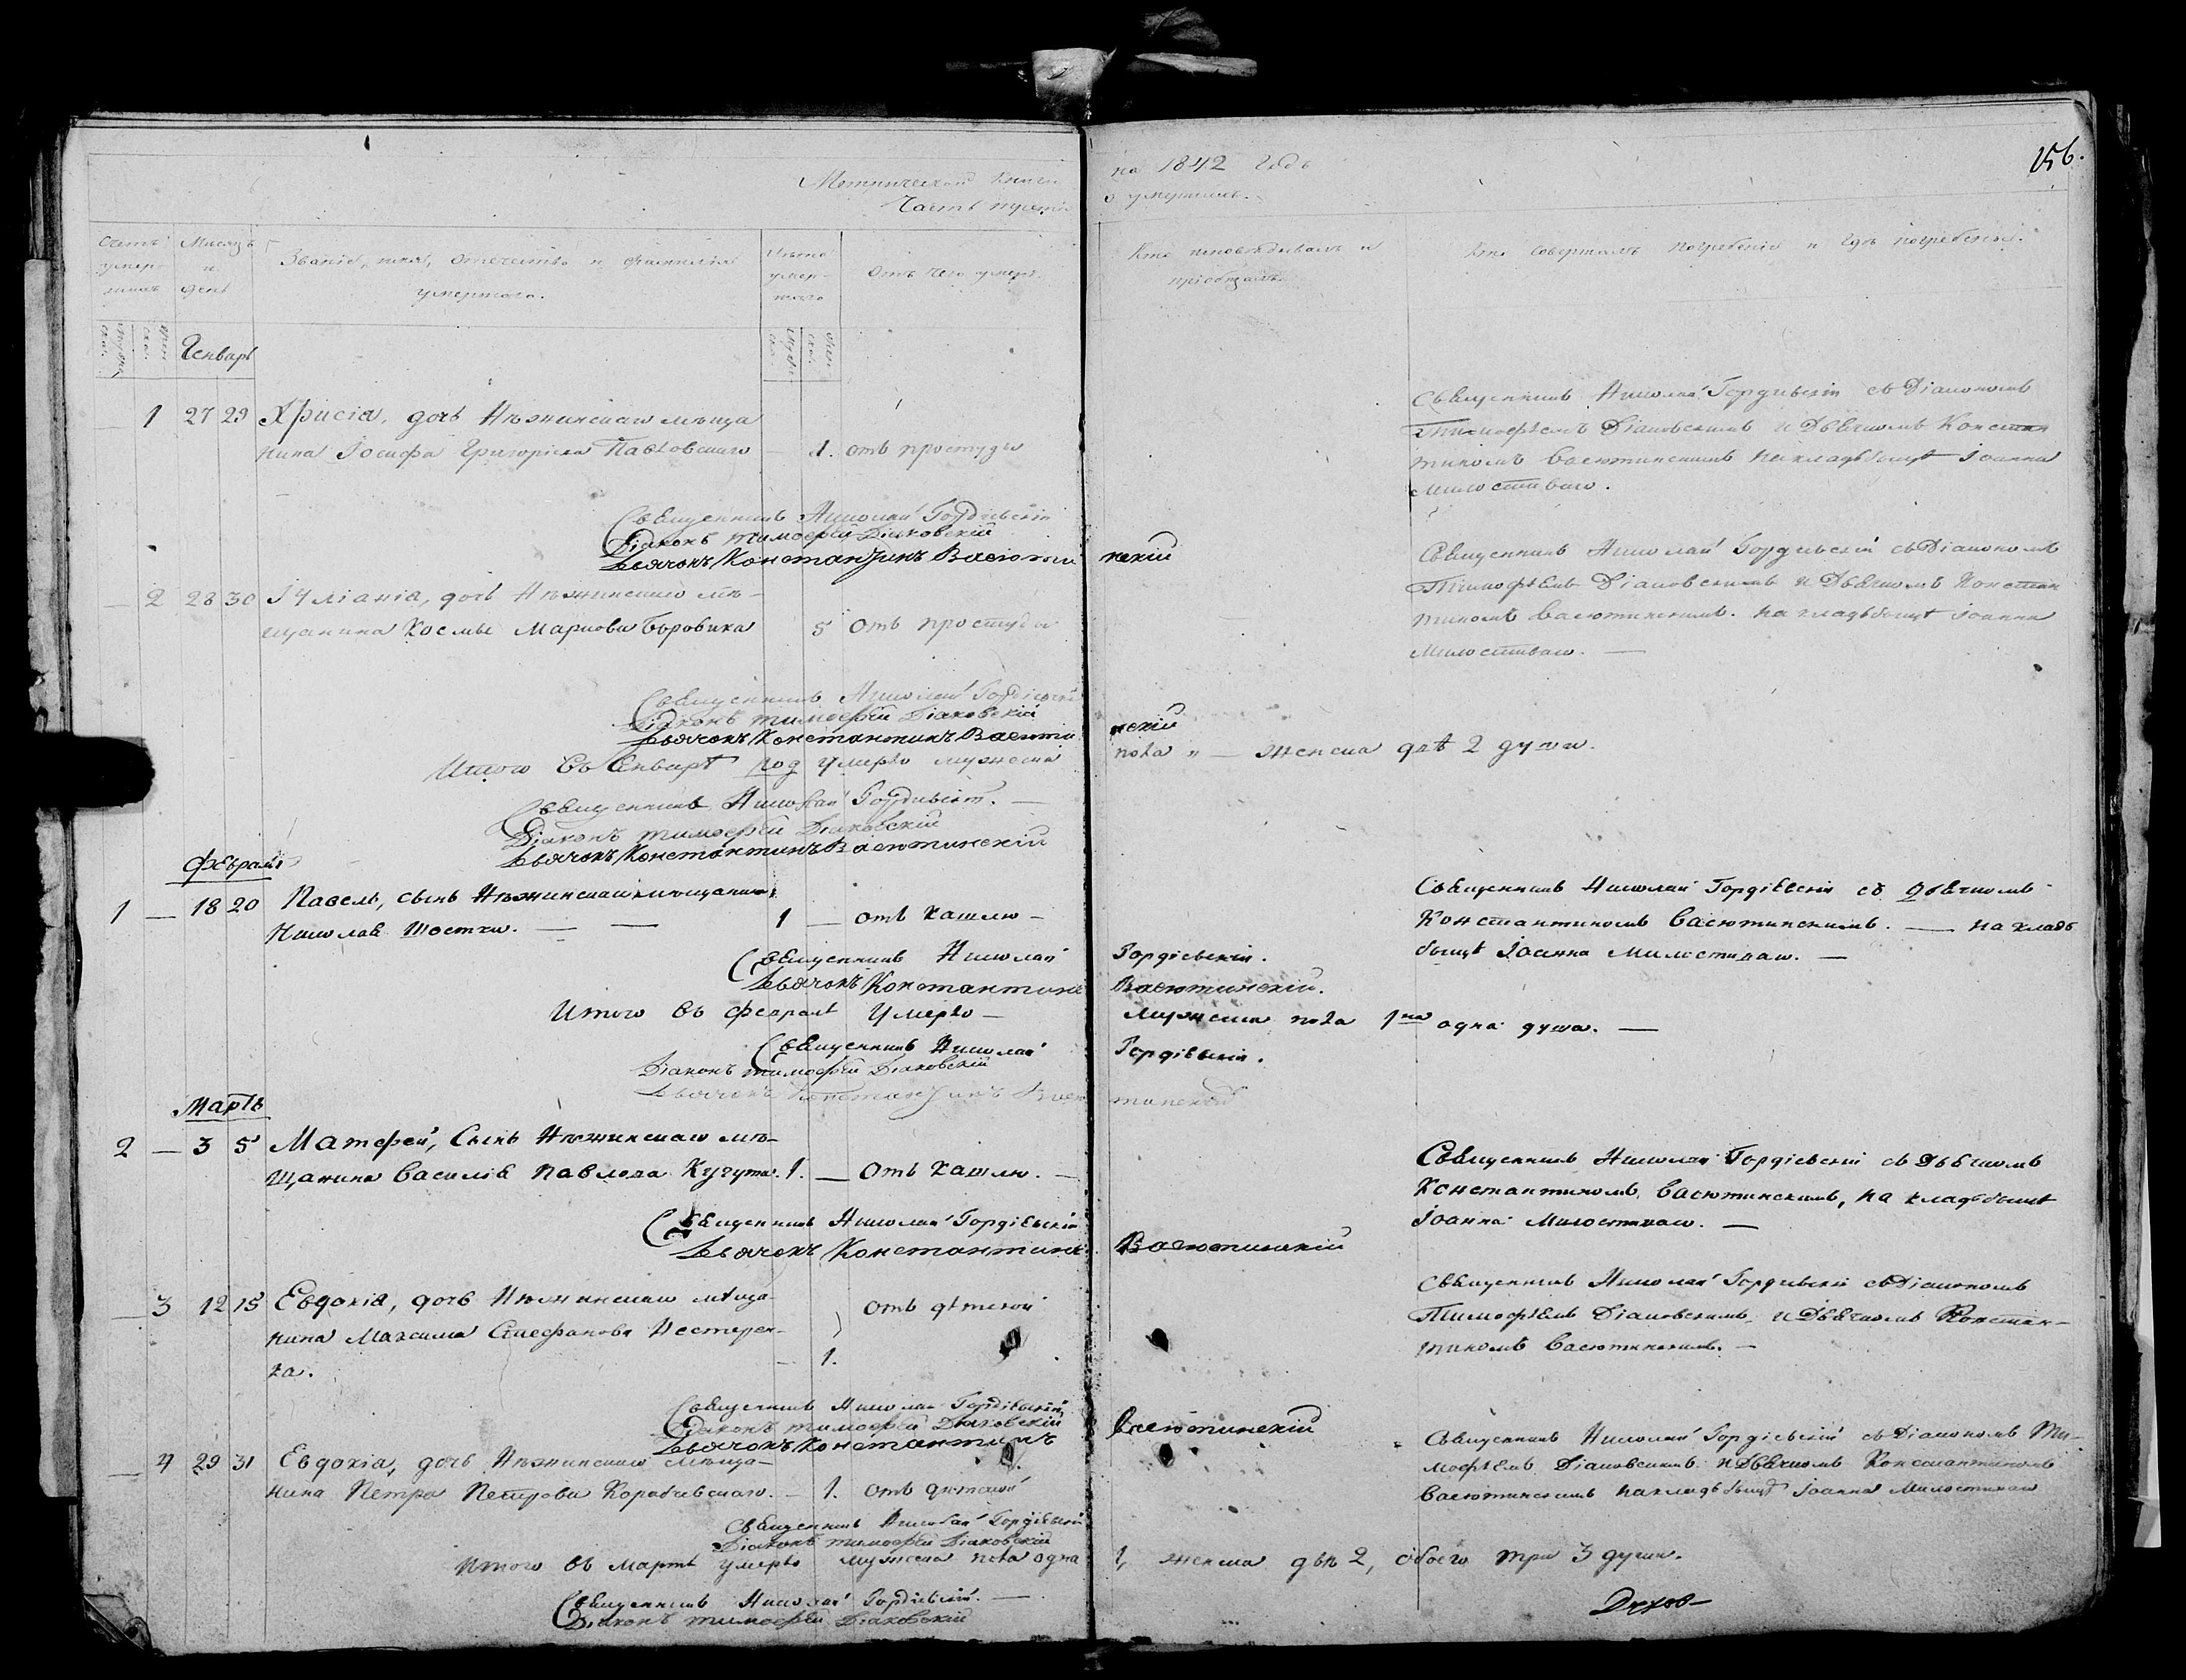 Метрической книги
Часть третья
Счетъ умер-
шихъ
Мѣсяцъ и день
Званіе, имя, отечество и фамилія
умершаго.
Лѣта умер-
шаго
Отъ чего умеръ
Генварь
1 27 29 Хрисія, дочь Нѣжинскаго мѣща
нина Іосифа Григоріева Павловскаго — 1. отъ простуды
Священникъ Николай Гордіевскій
Діаконъ Тимофей Діаковскій
Дьячокъ Константинъ Васютин
2 28 30 Іуліанія, дочь Нѣжинскаго мѣ-
щанина Космы Маркова Боровика 5 отъ простуды
Священникъ Николай Гордіевскій
Діаконъ Тимофей Діаковскій
Дьячокъ Константинъ Васюти
Итого въ Генварѣ умерло мужеска
Священникъ Николай Гордіевскій. —
Діаконъ Тимофей Діаковскій
Дьячокъ Константинъ Васютинскій
Февраль
1 — 18 20 Павелъ, сынъ Нѣжинскаго мѣщанина
Николая Шостки. — — 1 — отъ кашлю —
Священникъ Николай
Дьячокъ Константинъ
Итого въ Февралѣ умерло —
Священникъ Николай
Діаконъ Тимофей Діаковскій
Дьячокъ Константинъ Васю
Мартъ
2 — 3 5 Матфей, сынъ Нѣжинскаго мѣ-
щанина Василія Павлова 1. — Отъ кашлю. —
Священникъ Николай Гордіевскій
Дьячокъ Константинъ
— 3 12 15 Евдокія, дочь Нѣжинскаго мѣща-
нина Максима Стефанова Нестерен-
ка. — 1. отъ дѣтской
Священникъ Николай Гордіевскій
Діаконъ Тимофей Діаковскій
Дьячокъ Константинъ
— 4 29 31 Евдокія, дочь Нѣжинскаго мѣща-
нина Петра Петрова — 1. отъ дѣтской
Священникъ Николай Гордіевскій
Діаконъ Тимофей Діаковскій
Итого въ Мартѣ умерло мужеска пола одна
Священникъ Николай Гордіевскій. —
Діаконъ Тимофей Діаковскій
на 1842 годъ
о умершихъ.
156.
Кто исповѣдывалъ и
пріобщалъ
Кто совершалъ погребеніе и гдѣ погребены.
Священникъ Николай Гордіевскій съ Діакономъ
Тимофѣемъ Діаковскимъ и Дьячкомъ Констан
тиномъ Васютинскимъ на кладбищѣ Іоанна
Милостиваго.
нскій
Священникъ Николай Гордіевскій съ Діакономъ
Тимофѣемъ Діаковскимъ и Дьячкомъ Констан
тиномъ Васютинскимъ. на кладбищѣ Іоанна
Милостиваго. —
нскій
пола „ — женска двѣ 2 души.
Священникъ Николай Гордіевскій съ Дьячкомъ
Константиномъ Васютинскимъ. — на клад
бищѣ Іоанна Милостиваго. —
Гордіевскій.
Васютинскій.
Мужеска пола 1на одна душа. —
Гордіевскій.
тинской
Священникъ Николай Гордіевскій съ Дьячкомъ
Константиномъ Васютинскимъ, на кладбищѣ
Іоанна Милостиваго. —
Васютинскій
Священникъ Николай Гордіевскій съ Діакономъ
Тимофѣемъ Діаковскимъ и Дьячкомъ Констан-
тиномъ Васютинскимъ. —
Васютинскій
Священникъ Николай Гордіевскій съ Діакономъ Ти-
мофѣемъ Діаковскимъ и Дьячкомъ Константиномъ
Васютинскимъ на кладбищѣ Іоанна Милостиваго
1, женска двѣ 2, обоего три 3 души.